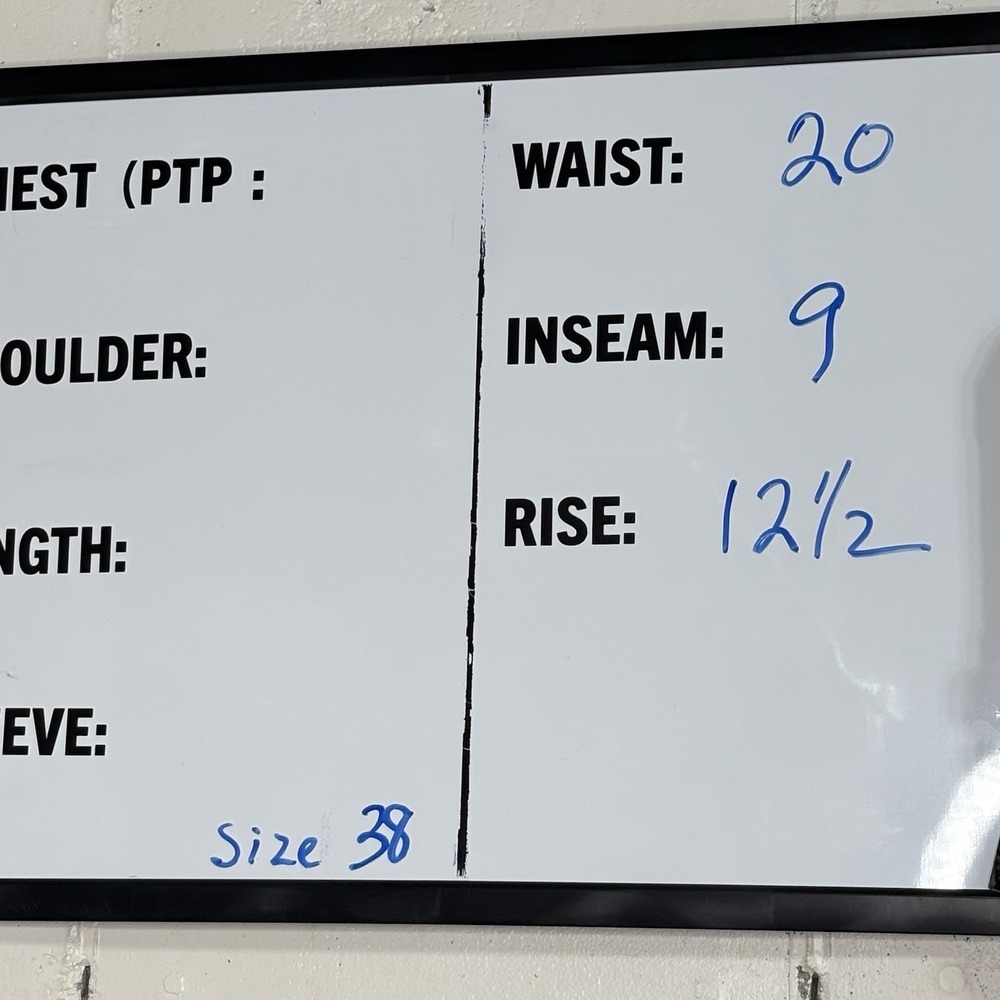 IEST (PTP :
OULDER:
NGTH:
EVE:
Size 38
WAIST: 20
INSEAM: 9
RISE: 12 1/2